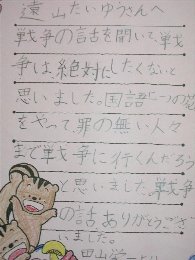 遠山たいゆうさんへ
戦争の話を聞いて、戦
争は、絶対にしたくないと
思いました。国語で一つの花
をやって、罪の無い人々
まで戦争に行くんだろう
と思いました。戦争
の話ありがとうござ
いました。